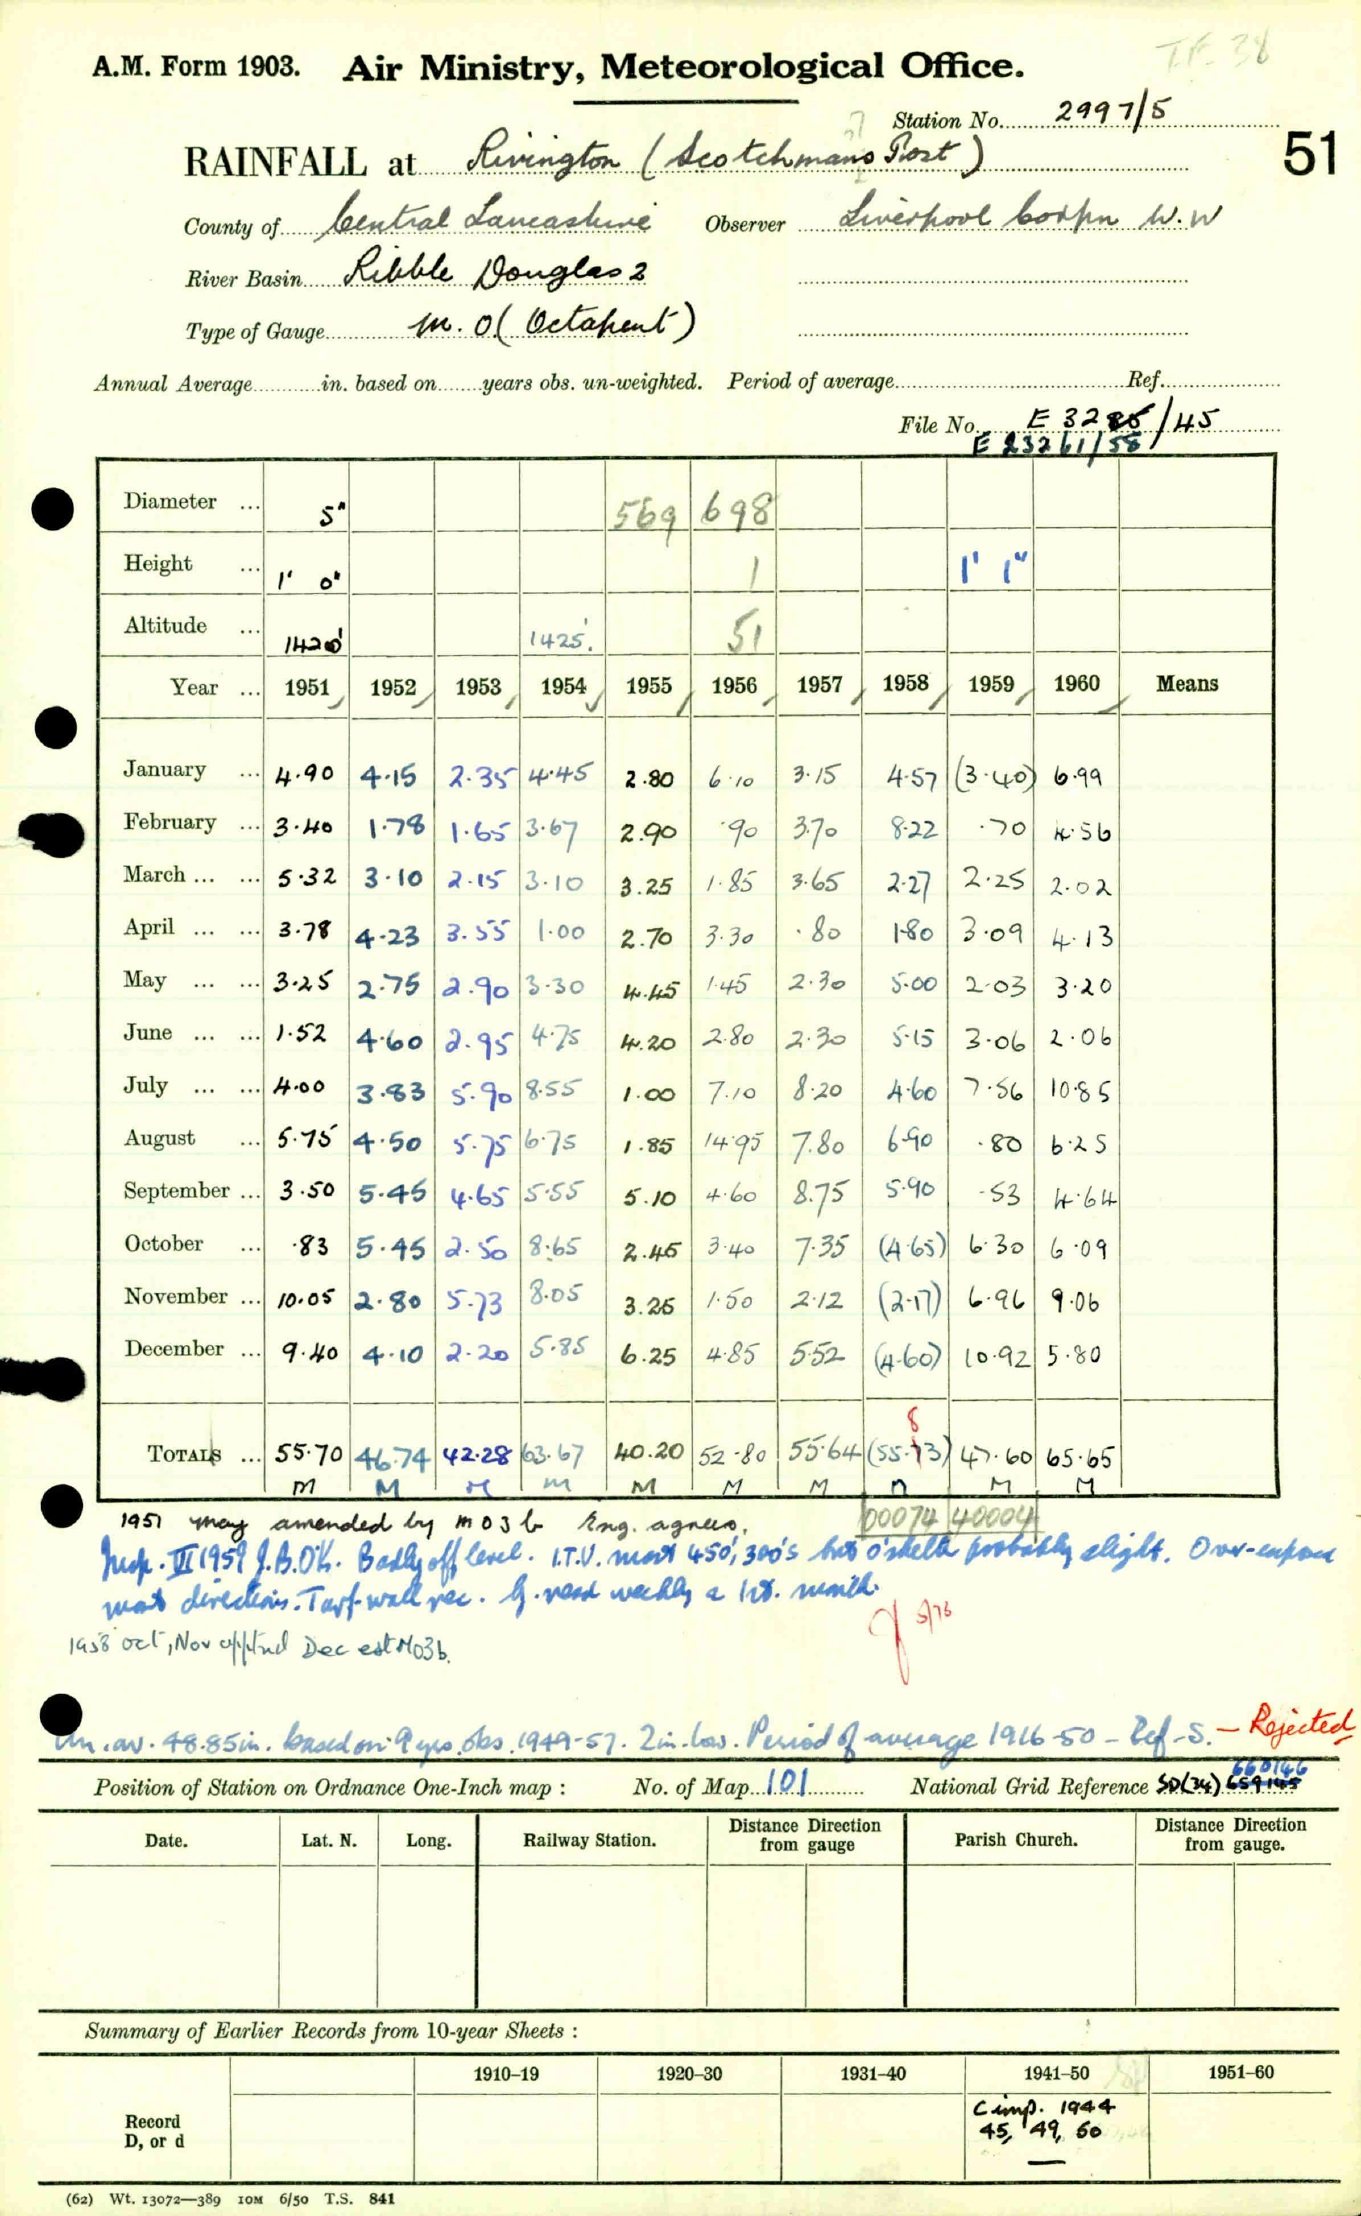 T.F. 38
A.M. Form 1903. Air Ministry, Meteorological Office.
Station No. 2997/5
51
RAINFALL at Rivington (Scotchmans Post)
County of Central Lancashire Observer Liverpool Corpn W.W
River Basin Ribble Douglas 2
Type of Gauge M.O (Octapent)
Annual Average in. based on years obs. un-weighted. Period of average Ref.
File No. E 3285/45
E 23261/58
Diameter ... 5" 569 698
Height ... 1' 0" 1 1' 1"
Altitude ... 1420' 1425'. 51
Year ... 1951 1952 1953 1954 1955 1956 1957 1958 1959 1960 Means
January ... 4.90 4.15 2.35 4.45 2.80 6.10 3.15 4.57 (3.40) 6.99
February ... 3.40 1.78 1.65 3.67 2.90 .90 3.70 8.22 .70 4.56
March ... ... 5.32 3.10 2.15 3.10 3.25 1.85 3.65 2.27 2.25 2.02
April ... ... 3.78 4.23 3.55 1.00 2.70 3.30 .80 1.80 3.09 4.13
May ... ... 3.25 2.75 2.90 3.30 4.45 1.45 2.30 5.00 2.03 3.20
June ... ... 1.52 4.60 2.95 4.75 4.20 2.80 2.30 5.15 3.06 2.06
July ... ... 4.00 3.83 5.90 8.55 1.00 7.10 8.20 4.60 7.56 10.85
August ... 5.75 4.50 5.75 6.75 1.85 14.95 7.80 6.90 .80 6.25
September ... 3.50 5.45 4.65 5.55 5.10 4.60 8.75 5.90 .53 4.64
October ... .83 5.45 2.50 8.65 2.45 3.40 7.35 (4.65) 6.30 6.09
November ... 10.05 2.80 5.73 8.05 3.25 1.50 2.12 (2.17) 6.96 9.06
December ... 9.40 4.10 2.20 5.85 6.25 4.85 5.52 (4.60) 10.92 5.80
8
TOTALS ... 55.70 46.74 42.28 63.67 40.20 52.80 55.64 (55.73) 47.60 65.65
M M M M M M M M M M
00074 40004
1951 May amended by MO3b Eng. agrees.
Insp. VII 1959 J.B.O'K. Badly off level. I.T.V. mast 450', 300's but o'shelter probably slight. Over-exposed
most directions. Turf-wall rec. G. read weekly & 1st. month.
5/76
1958 Oct, Nov apptnd Dec est MO3b.
An. av. 48.85in. based on 9 yrs. obs. 1949-57. 2in. low. Period of average 1916-50 - Ref-S. - Rejected
660146
Position of Station on Ordnance One-Inch map : No. of Map 101 National Grid Reference SD(34) 659145
Date. Lat. N. Long. Railway Station. Distance from Direction gauge Parish Church. Distance from Direction gauge.
Summary of Earlier Records from 10-year Sheets :
1910–19 1920–30 1931–40 1941–50 1951–60
Record
D, or d
C imp. 1944
45, 49, 50
(62) Wt. 13072—389 10M 6/50 T.S. 841